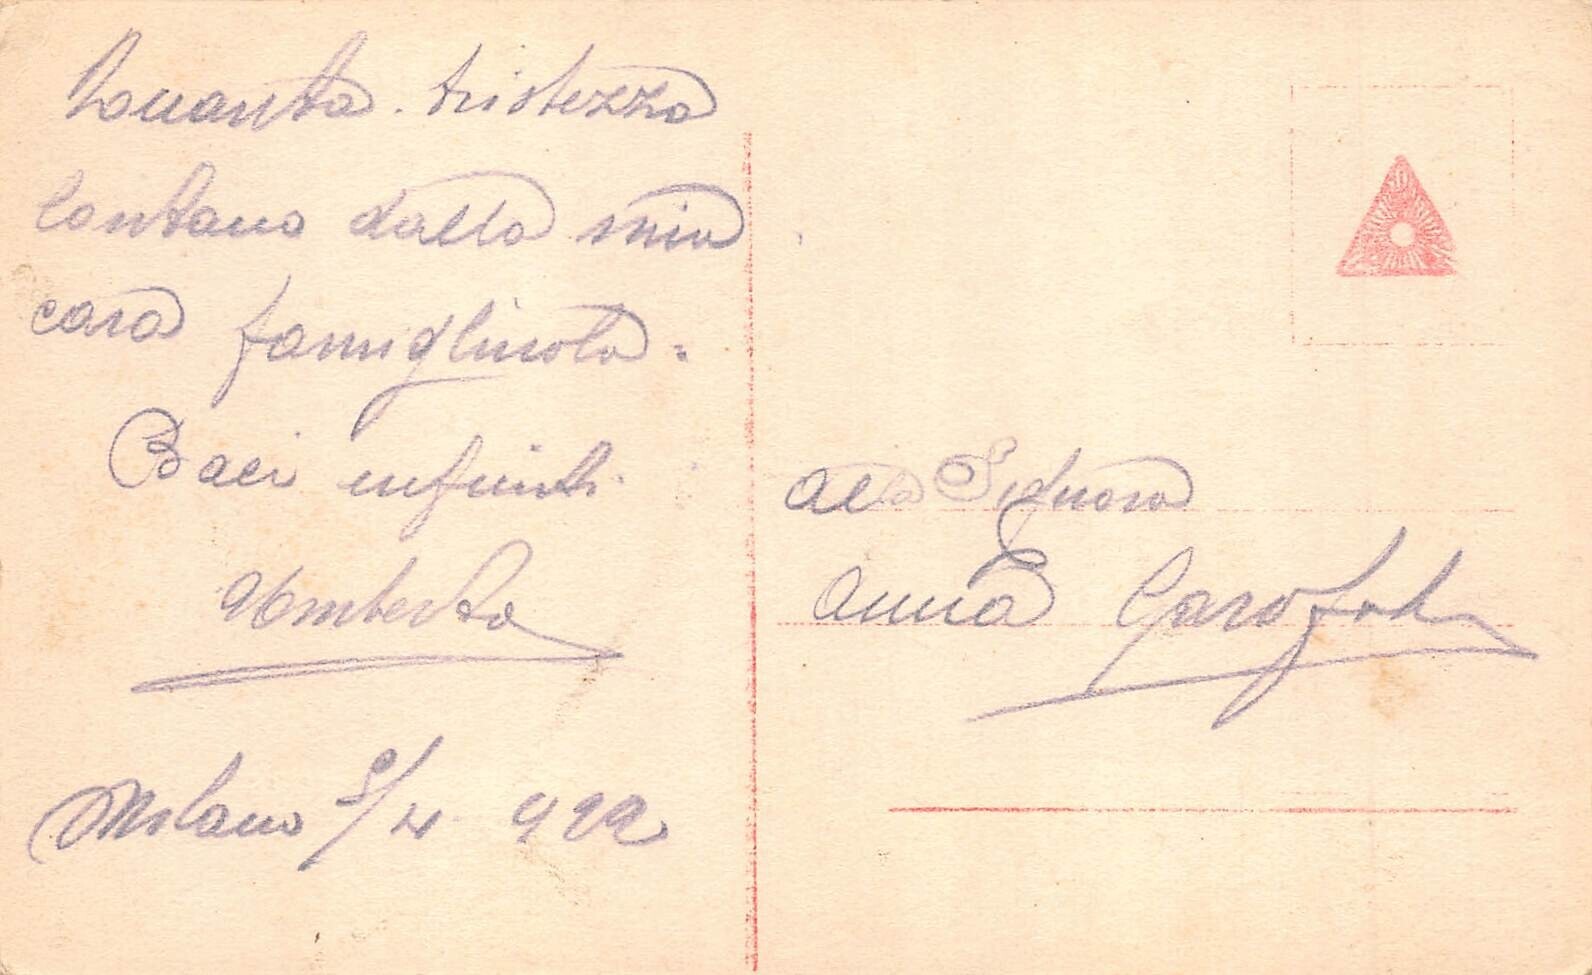 Quanta tristezza
lontano dalla mia
cara famigliuola.
Baci infiniti
Umberto
Milano 5/4 922
Alla Signora
Anna Garofali